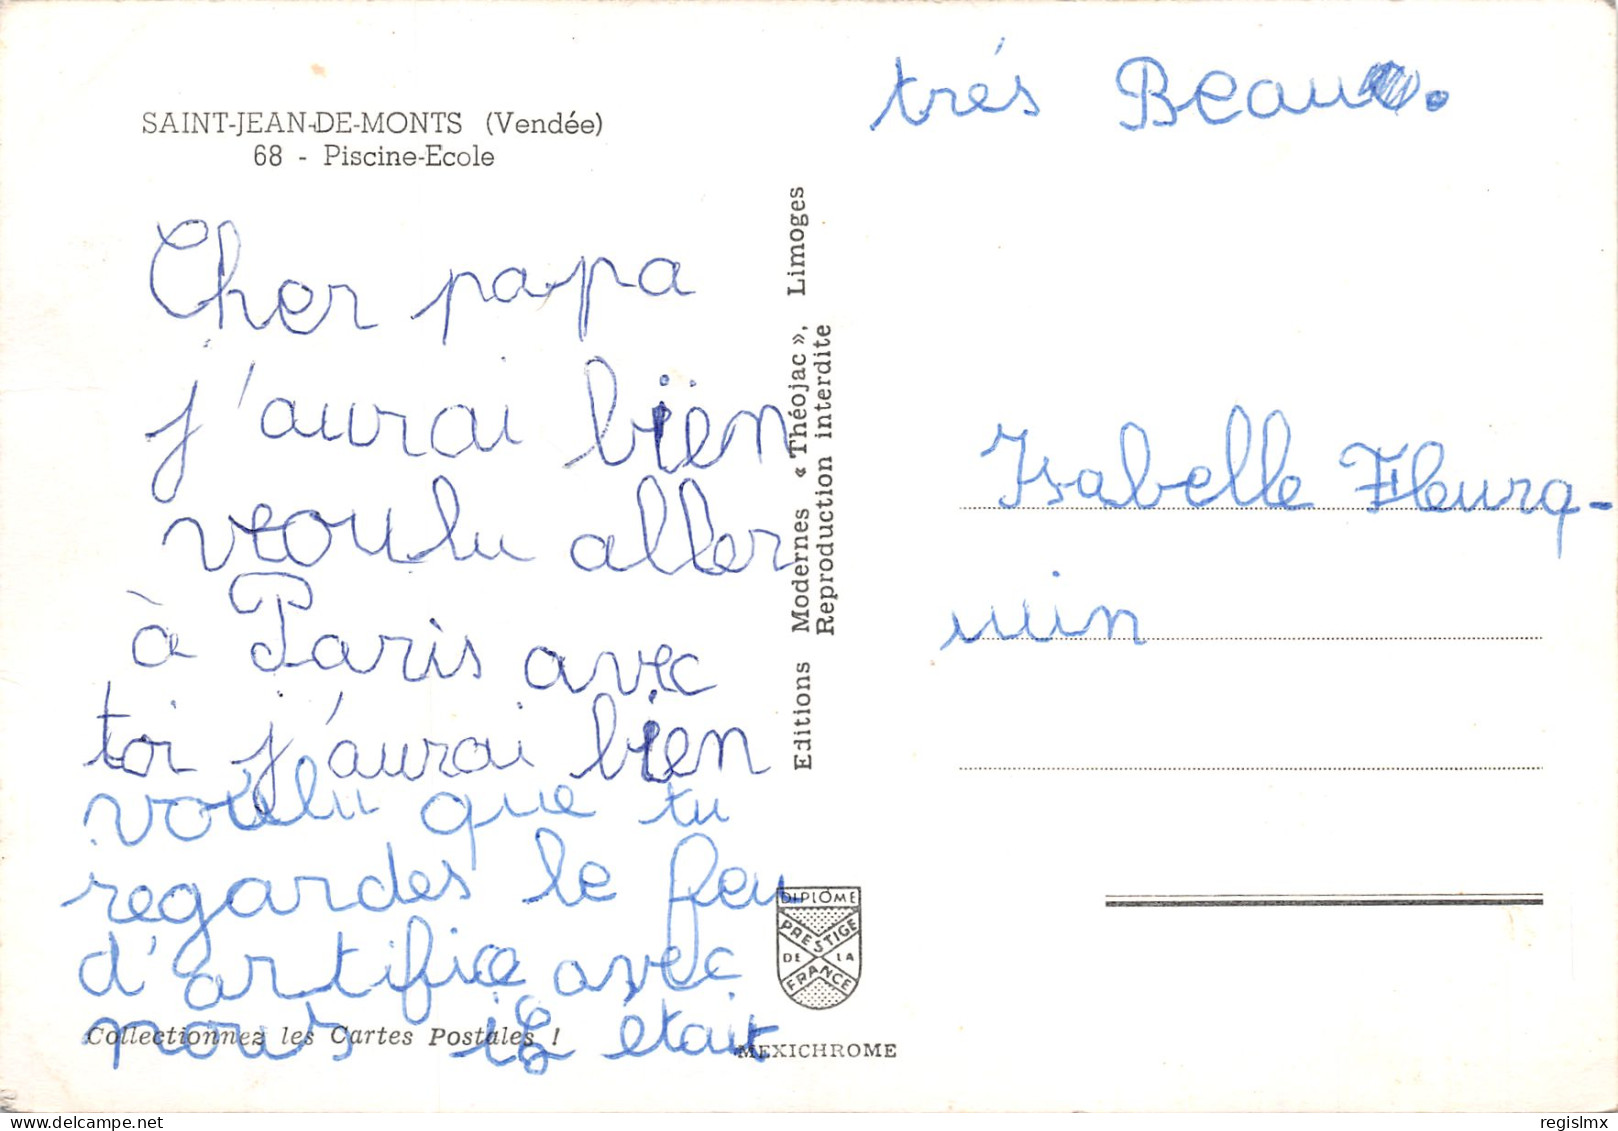 SAINT-JEAN-DE-MONTS (Vendée)
68 - Piscine-Ecole
Cher papa
j'aurai bien
voulu aller
à Paris avec
toi j'aurai bien
voulu que tu
regardes le feu
d'artifice avec
nous il était
très Beau.
Isabelle Fleurq-
uin
Editions Modernes « Théojac », Limoges
Reproduction interdite
DIPLÔME
PRESTIGE
DE LA
FRANCE
Collectionnez les Cartes Postales !
MEXICHROME
regislmx